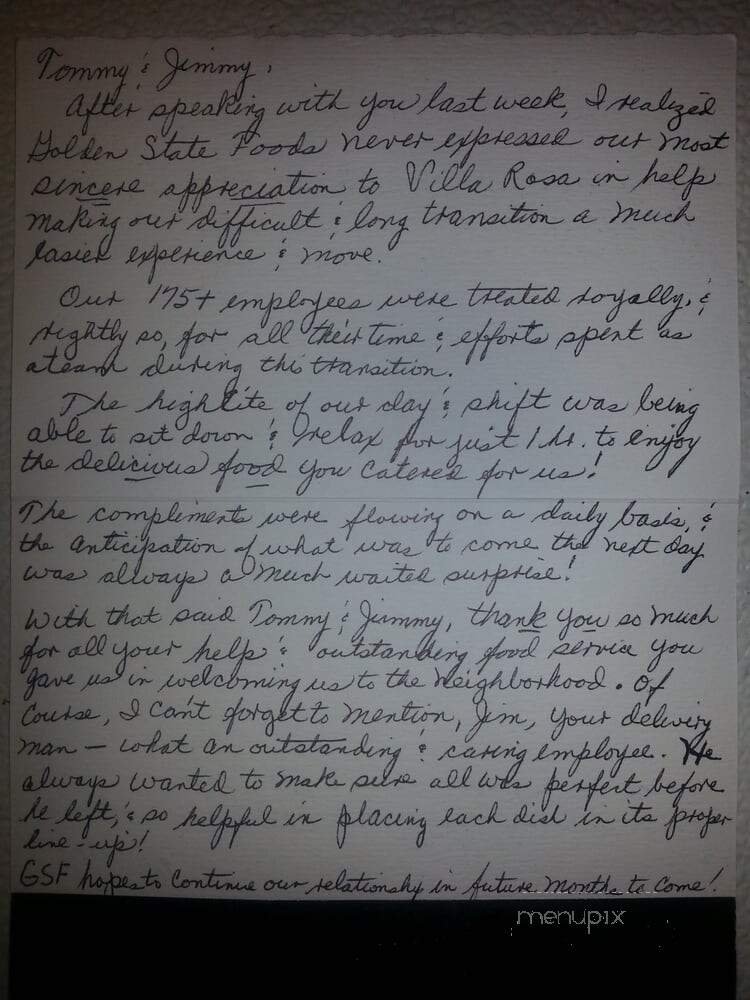 Tommy & Jimmy,
After speaking with you last week, I realized
Golden State Foods never expressed our most
sincere appreciation to Villa Rosa in help
making our difficult & long transition a much
easier experience & move.
Our 175+ employees were treated royally, &
rightly so, for all their time & efforts spent as
a team during this transition.
The highlite of our day & shift was being
able to sit down & relax for just 1 hr. to enjoy
the delicious food you catered for us!
The compliments were flowing on a daily basis, &
the anticipation of what was to come the next day
was always a much waited surprise!
With that said Tommy & Jimmy, thank you so much
for all your help & outstanding food service you
gave us in welcoming us to the neighborhood. Of
course, I can't forget to mention, Jim, your delivery
man — what an outstanding & caring employee. He
always wanted to make sure all was perfect before
he left, & so helpful in placing each dish in its proper
line-up!
GSF hopes to continue our relationship in future months to come!
menupix